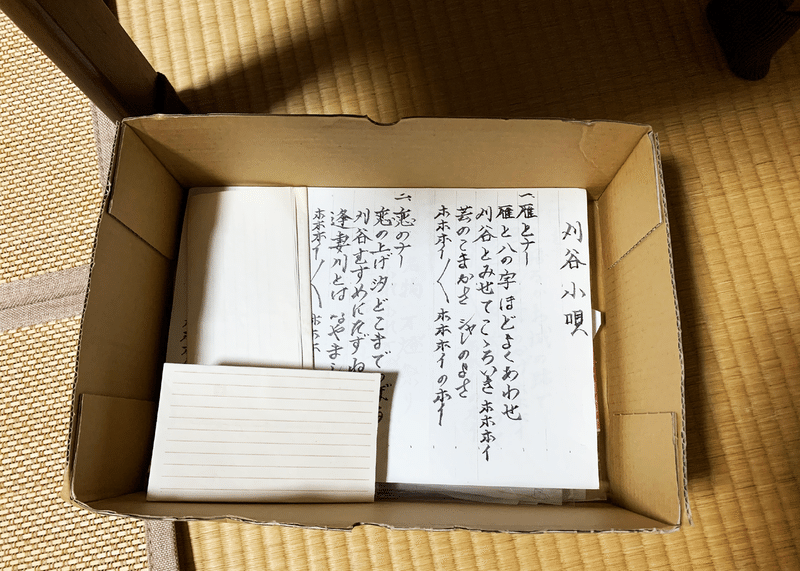 刈谷小唄
一、雁とナー
雁と八の字ほどよくあわせ
刈谷とみせてこゝろいき ホホホイ
芸のこまかさ シャレのよさ
ホホホイ〱 ホホホイのホイ
二、恋のナー
恋の上げ汐どこまで
刈谷すずめにたずね
逢妻川とは
ホホホイ〱 ホホホ